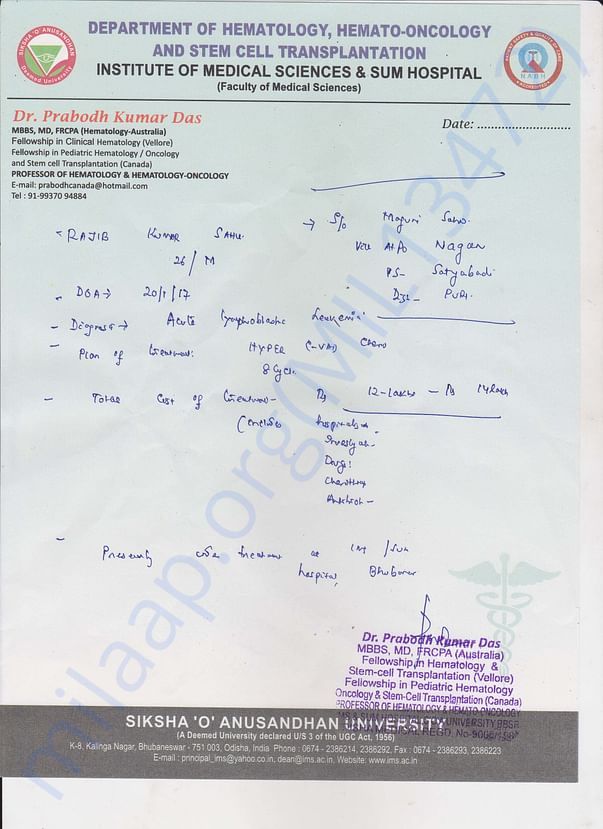 DEPARTMENT OF HEMATOLOGY, HEMATO-ONCOLOGY
AND STEM CELL TRANSPLANTATION
INSTITUTE OF MEDICAL SCIENCES & SUM HOSPITAL
(Faculty of Medical Sciences)
SIKSHA 'O' ANUSANDHAN
Deemed University
NABH
Dr. Prabodh Kumar Das
MBBS, MD, FRCPA (Hematology-Australia)
Fellowship in Clinical Hematology (Vellore)
Fellowship in Pediatric Hematology / Oncology
and Stem cell Transplantation (Canada)
PROFESSOR OF HEMATOLOGY & HEMATOLOGY-ONCOLOGY
E-mail: prabodhcanada@hotmail.com
Tel : 91-99370 94884
Date: ..............................
RAJIB KUMAR SAHU
26/M
→ S/o Maguni Sahu
Vill At/Po Nagan
PS- Satyabadi
Dist- PURI
DOA → 20/1/17
- Diagnosis → Acute Lymphoblastic Leukemia
- Plan of treatment: HYPER C-VAD Chemo
8 Cycle
- Total Cost of treatment- Rs 12-lakhs - Rs 14 lakh
(Includes hospital
Drugs
- Presently under treatment at IMS/SUM
hospital, Bhubaneswar
Dr. Prabodh Kumar Das
MBBS, MD, FRCPA (Australia)
Fellowship in Hematology &
Stem-cell Transplantation (Vellore)
Fellowship in Pediatric Hematology
Oncology & Stem-Cell Transplantation (Canada)
PROFESSOR OF HEMATOLOGY & HEMATO-ONCOLOGY
IMS & SUM HOSPITAL UNIVERSITY BBSR
SIKSHA 'O' ANUSANDHAN UNIVERSITY
(A Deemed University declared U/S 3 of the UGC Act, 1956)
K-8, Kalinga Nagar, Bhubaneswar - 751 003, Odisha, India Phone : 0674 - 2386214, 2386292, Fax : 0674 - 2386293, 2386223
E-mail : principal_ims@yahoo.co.in, dean@ims.ac.in, Website: www.ims.ac.in
milaap.org(MIL13472)